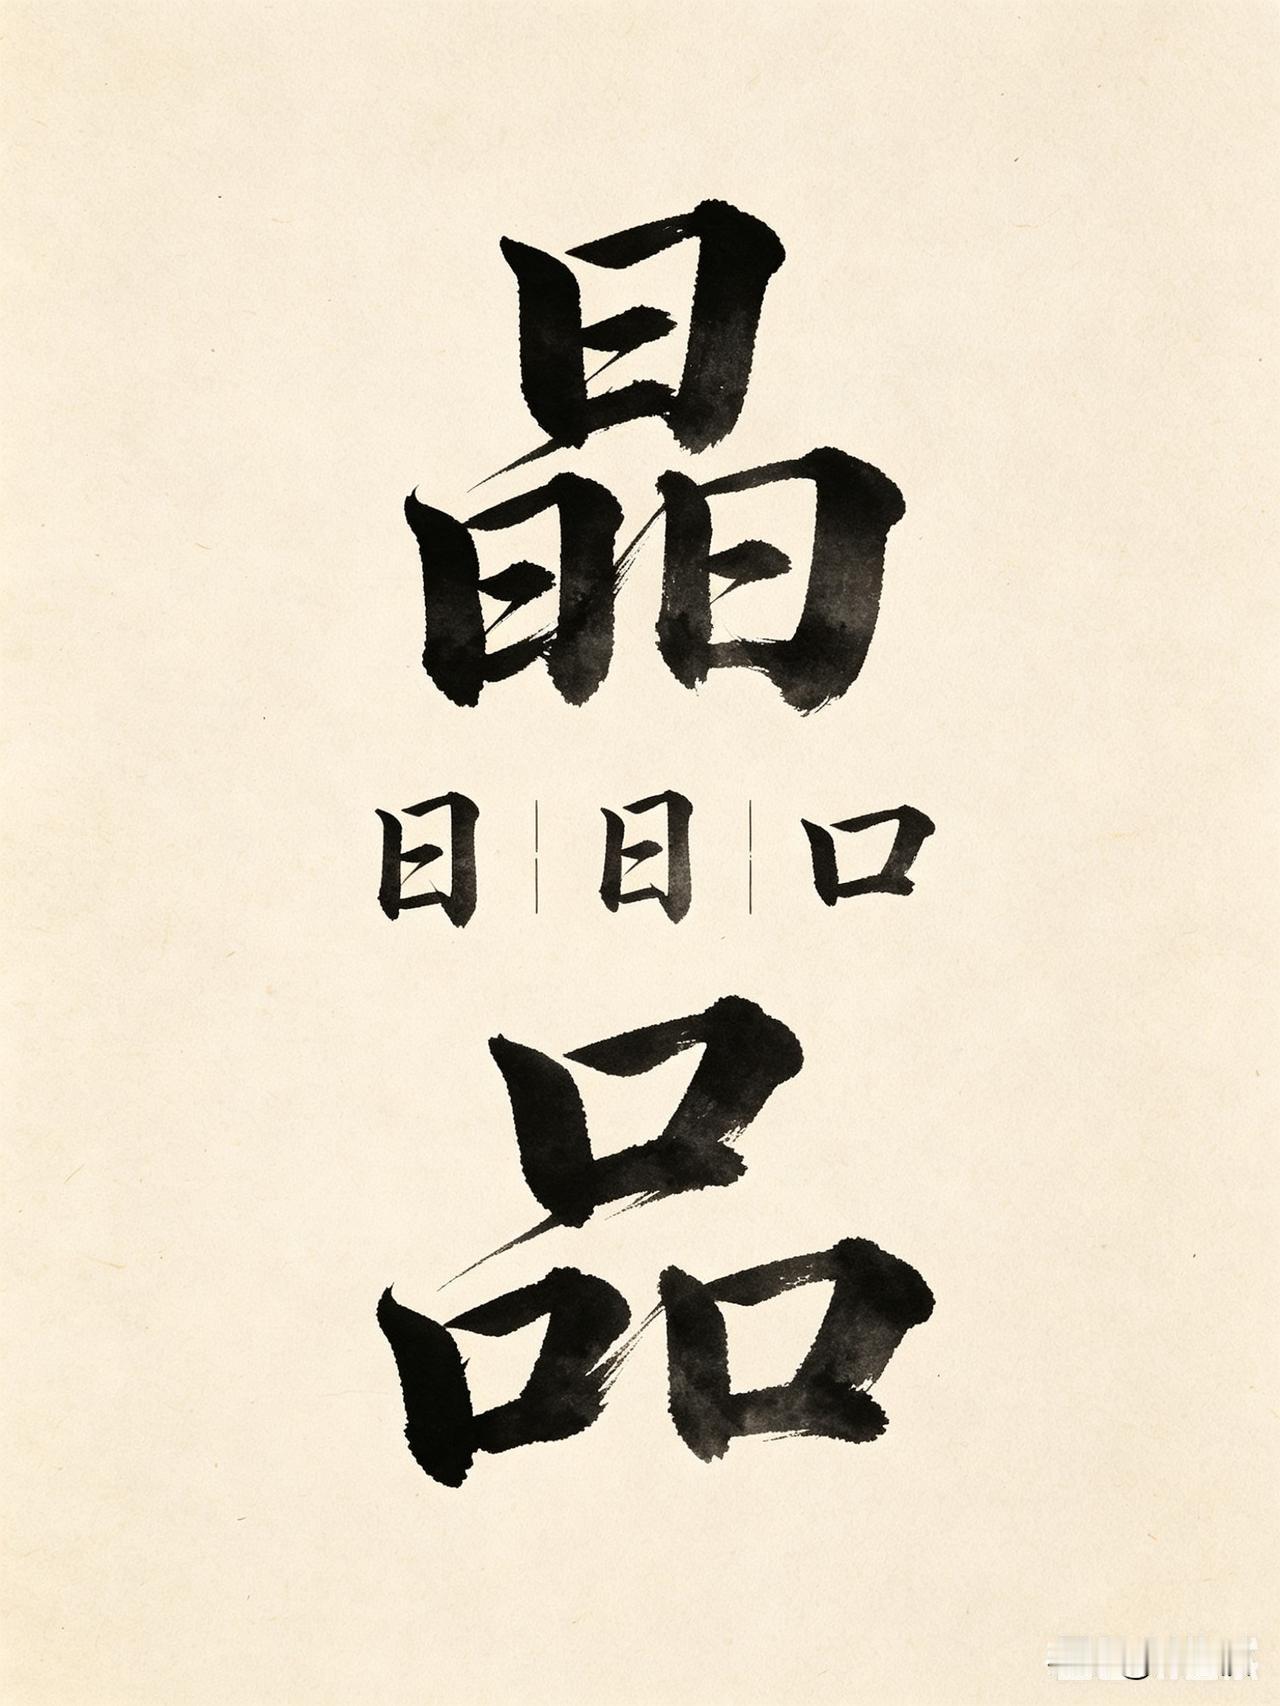 晶
日 | 日 | 口
品